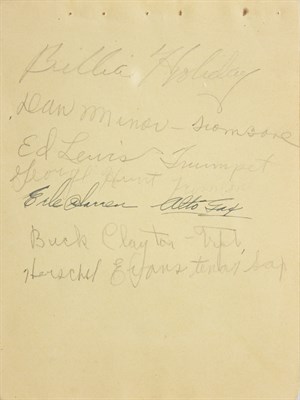 Billie Holiday
Dan Minor - Tromsone
Ed Lewis - Trumpet
George Hunt
Earle Warren - Alto Sax
Buck Clayton - Tpt,
Herschel Evans tenor sax